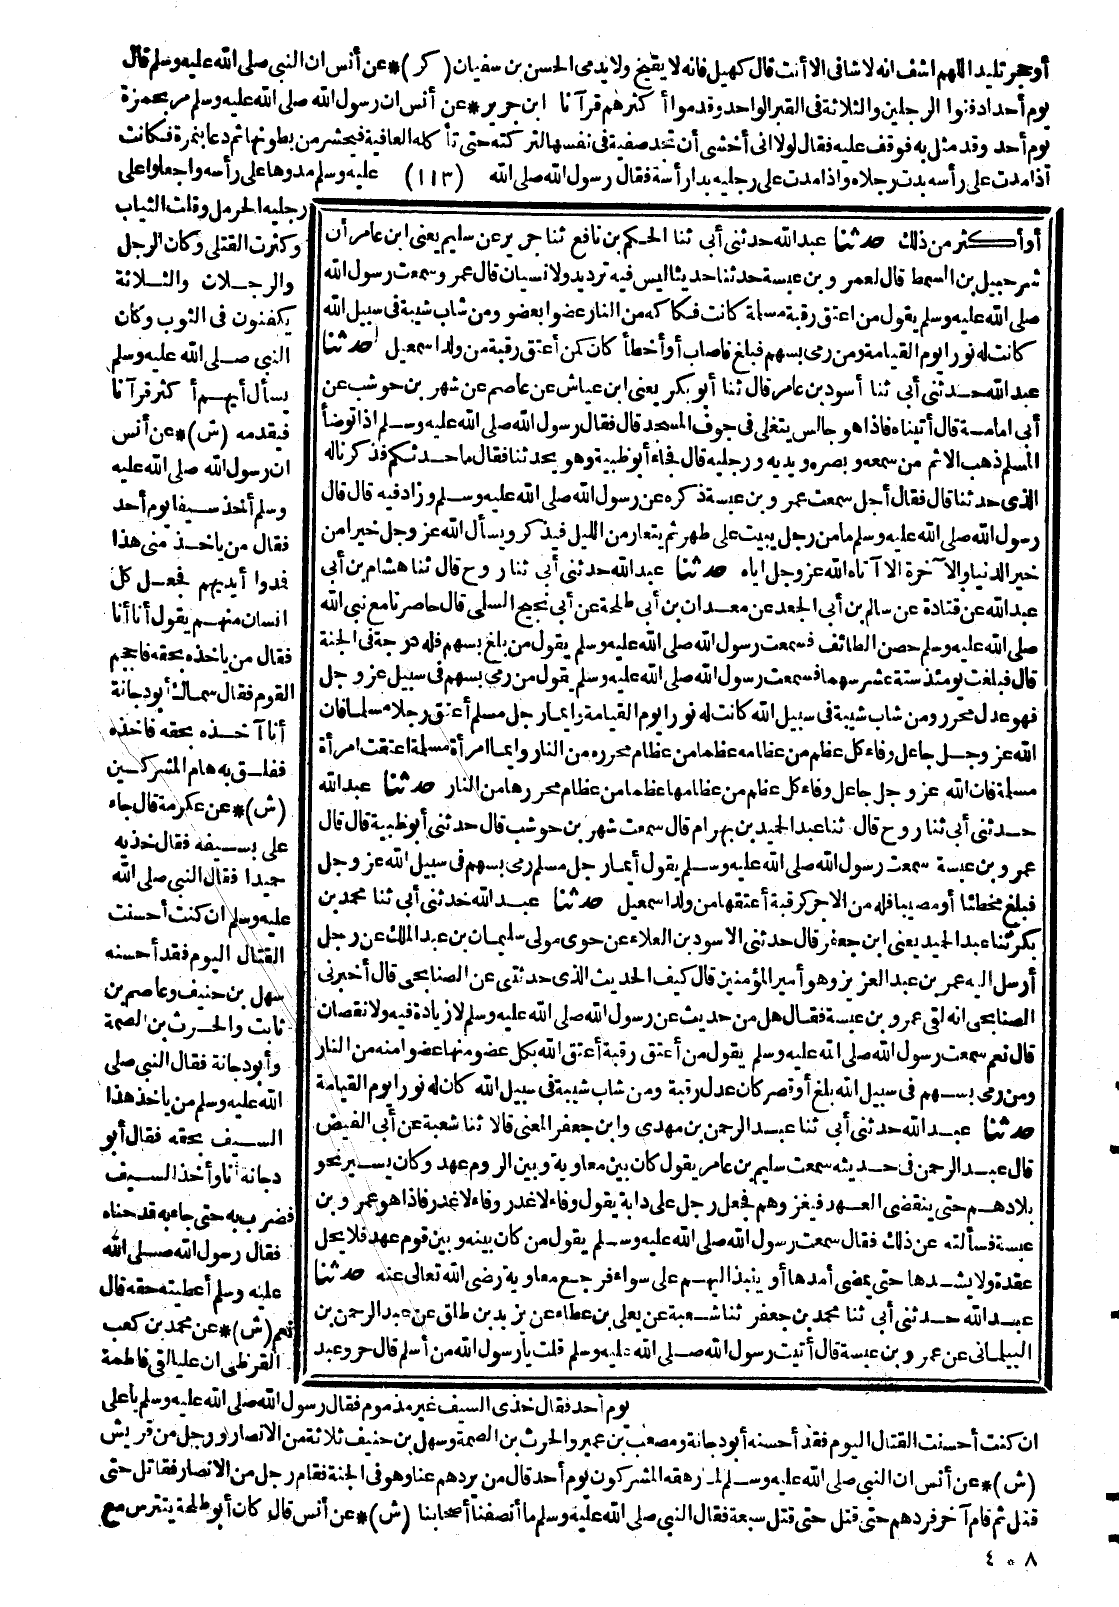 أو جمر تليد اللهم اشف انه لا شافى الا أنت قال كهيل فانه لا يقيخ ولا يدمى الحسن بن سفيان (كر)* عن أنس ان النبي صلى الله عليه وسلم قال
يوم أحد ادفنوا الرجلين والثلاثة فى القبر الواحد وقدموا أكثرهم قرآنا ابن جرير* عن أنس ان رسول الله صلى الله عليه وسلم مر بحمزة
يوم أحد وقد مثل به فوقف عليه فقال لولا انى أخشى أن تجد صفية فى نفسها لتركته حتى تأكله العافية فيحشر من بطونها ثم دعا بنمرة فكانت
اذا مدت على رأسه بدت رجلاه واذا مدت على رجليه بدا رأسه فقال رسول الله صلى الله (١١٣) عليه وسلم مدوها على رأسه واجعلوا على
رجليه الحرمل وقلت الثياب
وكثرت القتلى وكان الرجل
والرجلان والثلاثة
يكفنون فى الثوب وكان
النبي صلى الله عليه وسلم
يسأل أيهم أكثر قرآنا
فيقدمه (ش)* عن أنس
ان رسول الله صلى الله عليه
وسلم أخذ سيفا يوم أحد
فقال من ياخذ منى هذا
فمدوا أيديهم فجعل كل
انسان منهم يقول أنا أنا
فقال من ياخذه بحقه فاحجم
القوم فقال سماك أبو دجانة
أنا آخذه بحقه فاخذه
ففلق به هام المشركين
(ش)* عن عكرمة قال جاء
على بسيفه فقال خذيه
حميدا فقال النبي صلى الله
عليه وسلم ان كنت أحسنت
القتال اليوم فقد أحسنه
سهل بن حنيف وعاصم بن
ثابت والحرث بن الصمة
وأبو دجانة فقال النبي صلى
الله عليه وسلم من ياخذ هذا
السيف بحقه فقال أبو
دجانة أنا وأخذ السيف
فضرب به حتى جاء به قد حناه
فقال رسول الله صلى الله
عليه وسلم أعطيته حقه قال
نعم (ش)* عن محمد بن كعب
القرظى ان عليا لقى فاطمة
أو أكثر من ذلك حدثنا عبد الله حدثنى أبى ثنا الحكم بن نافع ثنا حرير عن سليم يعنى ابن عامر أن
شرحبيل بن السمط قال لعمرو بن عبسة حدثنا حديثا ليس فيه ترديد ولا نسيان قال عمرو سمعت رسول الله
صلى الله عليه وسلم يقول من اعتق رقبة مسلمة كانت فكاكه من النار عضوا بعضو ومن شاب شيبة فى سبيل الله
كانت له نورا يوم القيامة ومن رمى بسهم فبلغ فاصاب أو أخطأ كان كمن أعتق رقبة من ولد اسمعيل حدثنا
عبد الله حدثنى أبى ثنا أسود بن عامر قال ثنا أبو بكر يعنى ابن عياش عن عاصم عن شهر بن حوشب عن
أبى امامة قال أتيناه فاذا هو جالس يتفلى فى جوف المسجد قال فقال رسول الله صلى الله عليه وسلم اذا توضأ
المسلم ذهب الاثم من سمعه وبصره ويديه ورجليه قال فجاء أبو ظبية وهو يحدثنا فقال ما حدثكم فذكرنا له
الذى حدثنا قال فقال أجل سمعت عمرو بن عبسة ذكره عن رسول الله صلى الله عليه وسلم وزاد فيه قال قال
رسول الله صلى الله عليه وسلم ما من رجل يبيت على طهر ثم يتعار من الليل فيذكر ويسأل الله عز وجل خيرا من
خير الدنيا والآخرة الا آتاه الله عز وجل اياه حدثنا عبد الله حدثنى أبى ثنا روح قال ثنا هشام بن أبى
عبد الله عن قتادة عن سالم بن أبى الجعد عن معدان بن أبى طلحة عن أبى نجيح السلمى قال حاصرنا مع نبى الله
صلى الله عليه وسلم حصن الطائف فسمعت رسول الله صلى الله عليه وسلم يقول من بلغ بسهم فله درجة فى الجنة
قال فبلغت يومئذ ستة عشر سهما فسمعت رسول الله صلى الله عليه وسلم يقول من رمى بسهم فى سبيل عز وجل
فهو عدل محرر ومن شاب شيبة فى سبيل الله كانت له نورا يوم القيامة وايما رجل مسلم أعتق رجلا مسلما فان
الله عز وجل جاعل وفاء كل عظم من عظامه عظما من عظام محرره من النار وايما امرأة مسلمة اعتقت امرأة
مسلمة فان الله عز وجل جاعل وفاء كل عظم من عظامها عظما من عظام محررها من النار حدثنا عبد الله
حدثنى أبى ثنا روح قال ثنا عبد الحميد بن بهرام قال سمعت شهر بن حوشب قال حدثنى أبو ظبية قال قال
عمرو بن عبسة سمعت رسول الله صلى الله عليه وسلم يقول أيما رجل مسلم رمى بسهم فى سبيل الله عز وجل
فبلغ مخطئا أو مصيبا فله من الاجر كرقبة أعتقها من ولد اسمعيل حدثنا عبد الله حدثنى أبى ثنا محمد بن
بكر ثنا عبد الحميد يعنى ابن جعفر قال حدثنى الاسود بن العلاء عن حوى مولى سليمان بن عبد الملك عن رجل
أرسل اليه عمر بن عبد العزيز وهو أمير المؤمنين قال كيف الحديث الذى حدثتنى عن الصنابحى قال أخبرنى
الصنابحى انه لقى عمرو بن عبسة فقال هل من حديث عن رسول الله صلى الله عليه وسلم لا زيادة فيه ولا نقصان
قال نعم سمعت رسول الله صلى الله عليه وسلم يقول من أعتق رقبة أعتق الله بكل عضو منها عضوا منه من النار
ومن رمى بسهم فى سبيل الله بلغ أو قصر كان عدل رقبة ومن شاب شيبة فى سبيل الله كان له نورا يوم القيامة
حدثنا عبد الله حدثنى أبى ثنا عبد الرحمن بن مهدى وابن جعفر المعنى قالا ثنا شعبة عن أبى الفيض
قال عبد الرحمن فى حديثه سمعت سليم بن عامر يقول كان بين معاوية وبين الروم عهد وكان يسير نحو
بلادهم حتى ينقضى العهد فيغزوهم فجعل رجل على دابة يقول وفاء لا غدر وفاء لا غدر فاذا هو عمرو بن
عبسة فسألته عن ذلك فقال سمعت رسول الله صلى الله عليه وسلم يقول من كان بينه وبين قوم عهد فلا يحل
عقدة ولا يشدها حتى يمضى أمدها أو ينبذ اليهم على سواء فرجع معاوية رضى الله تعالى عنه حدثنا
عبد الله حدثنى أبى ثنا محمد بن جعفر ثنا شعبة عن يعلى بن عطاء عن يزيد بن طلق عن عبد الرحمن بن
البيلمانى عن عمرو بن عبسة قال أتيت رسول الله صلى الله عليه وسلم قلت يا رسول الله من أسلم قال حر وعبد
يوم أحد فقال خذى السيف غير مذموم فقال رسول الله صلى الله عليه وسلم يا على
ان كنت أحسنت القتال اليوم فقد أحسنه أبو دجانة ومصعب بن عمير والحرث بن الصمة وسهل بن حنيف ثلاثة من الانصار ورجل من قريش
(ش)* عن أنس ان النبي صلى الله عليه وسلم لما رهقه المشركون يوم أحد قال من يردهم عنا وهو فى الجنة فقام رجل من الانصار فقاتل حتى
قتل ثم قام آخر فردهم حتى قتل حتى قتل سبعة فقال النبي صلى الله عليه وسلم ما أنصفنا أصحابنا (ش)* عن أنس قال كان أبو طلحة يتترس مع
٤٠٨